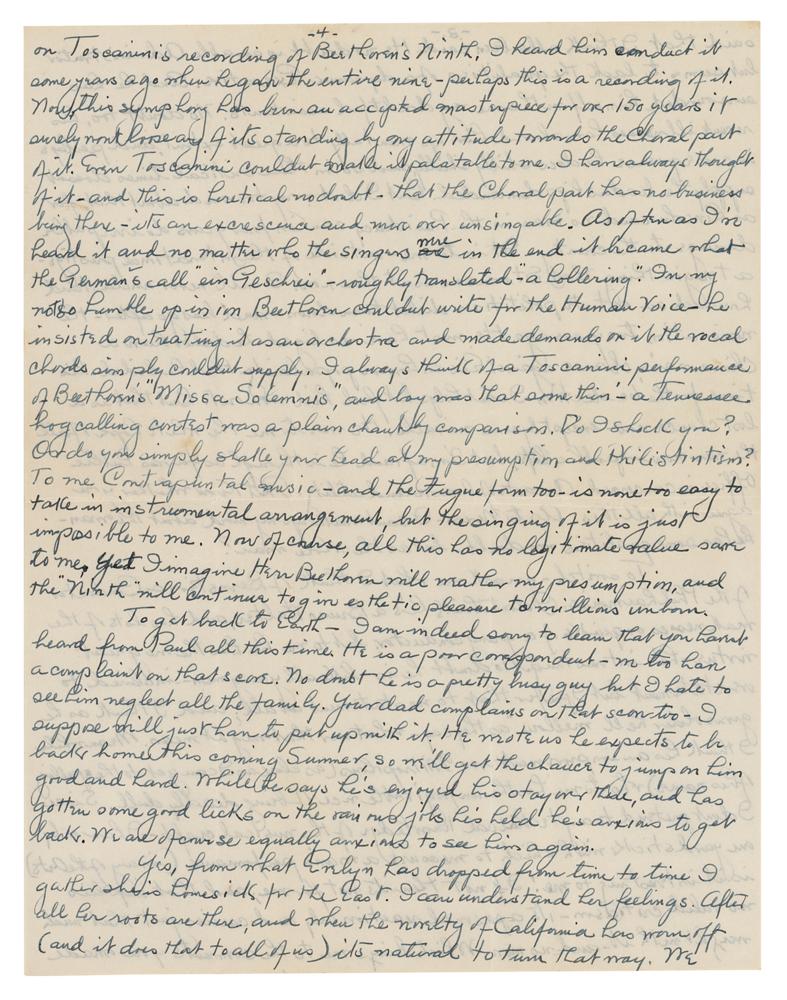 -4-
on Toscanini's recording of Beethoven's Ninth, I heard him conduct it
some years ago when he gave the entire nine - perhaps this is a recording of it.
Now, this symphony has been an accepted masterpiece for over 150 years it
surely won't loose any of it's standing by my attitude torwards the Choral part
of it. Even Toscanini couldn't make it palatable to me. I have always thought
of it - and this is heretical no doubt - that the Choral part has no business
being there - it's an excrescence and more over unsingable. As often as I've
heard it and no matter who the singers were in the end it became what
the German's call "ein Geschrei" - roughly translated - "a hollering". In my
not so humble opinion Beethoven couldn't write for the Human Voice - he
insisted on treating it as an orchestra and made demands on it the vocal
chords simply couldn't supply. I always think of a Toscanini performance
of Beethoven's "Missa Solemnis", and boy was that somethin' - a Tennessee
hog calling contest was a plain chant by comparison. Do I shock you?
Or do you simply shake your head at my presumption and Philistintism?
To me Contrapuntal music - and the Fugue form too - is none too easy to
take in instrumental arrangement, but the singing of it is just
impossible to me. Now of course, all this has no legitimate value save
to me, yet I imagine Herr Beethoven will weather my presumption, and
the "Ninth" will continue to give esthetic pleasure to millions unborn.
To get back to Earth - I am indeed sorry to learn that you havn't
heard from Paul all this time. He is a poor corespondent - we too have
a complaint on that score. No doubt he is a pretty busy guy but I hate to
see him neglect all the family. Your dad complains on that score too - I
suppose we'll just have to put up with it. He wrote us he expects to be
back home this coming Summer, so we'll get the chance to jump on him
good and hard. While he says he's enjoyed his stay over there, and has
gotten some good licks on the various jobs he's held he's anxious to get
back. We are of course equally anxious to see him again.
Yes, from what Evelyn has dropped from time to time I
gather she is homesick for the East. I can understand her feelings. After
all her roots are there, and when the novelty of California has worn off
(and it does that to all of us) it's natural to turn that way. We